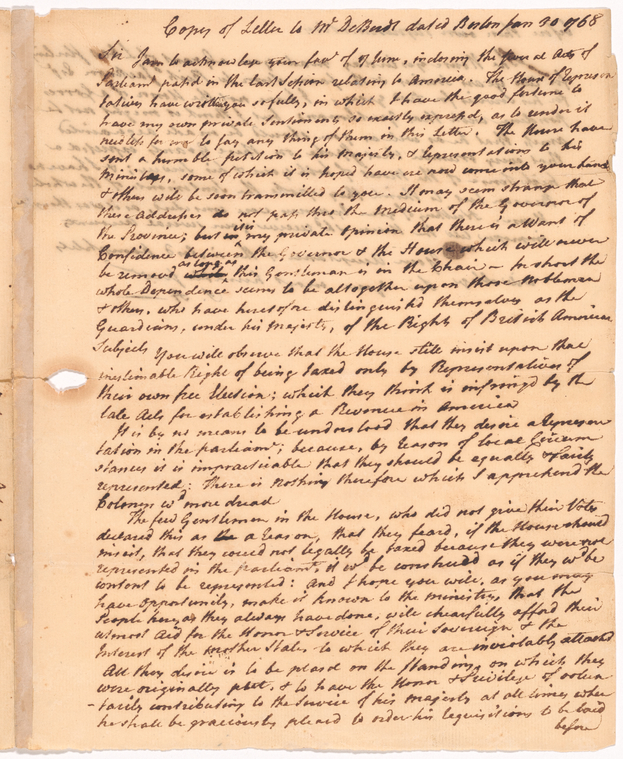 Copy of Letter to Mr DeBerdt dated Boston Jan 30 1768
Sir I am to acknowledge your favr of inclosing the several Acts of
Parliamt passd in the last Session relating to America. The House of Represen
tatives have wrote you so fully, in which I have the good fortune to
have my own private Sentiments so exactly expressd, as to render it
needless for me to say any thing of them in this Letter. The House have
sent a humble petition to his majesty, & representations to his
ministers, some of which it is hoped have ere now come into your hand
& others will be soon transmitted to you. It may seem strange that
these Addresses do not pass thro the medium of the Governor of
the Province; but it is my private Opinion that there is a Want of
Confidence between the Governor & the House which will never
be removd as long as this Gentleman is in the Chair – In short the
whole Dependence seems to be altogether upon those Noblemen
& others, who have heretofore distinguishd themselves as the
Guardians, under his majesty, of the Rights of British American
Subjects You will observe that the House still insist upon that
inestimable Right of being taxed only by Representatives of
their own free Election; which they think is infringd by the
late Acts for establishing a Revenue in America
It is by no means to be understood that they desire a Represen
tation in the parliamt; because, by reason of local Circum
stances it is impracticable that they should be equally & fairly
represented: There is nothing therefore which I apprehend the
Colonys wd more dread
The few Gentlemen in the House, who did not give their Votes
declared this as a reason, that they feard, if the House should
insist, that they could not legally be taxed because they were not
represented in the parliamt, it wd be construed as if they wd be
content to be represented: And I hope you will, as you may
have opportunity, make it known to the ministry, that the
People here, as they always have done, will chearfully afford their
utmost Aid for the Honor & Service of their Sovereign & the
Interest of the mother State, to which they are inviolably attachd
All they desire is to be placd on the Standing on which they
were originally put, & to have the Honor & Privilege of volun
-tarily contributing to the Service of his majesty at all times when
he shall be graciously pleasd to order his requisitions to be laid
before